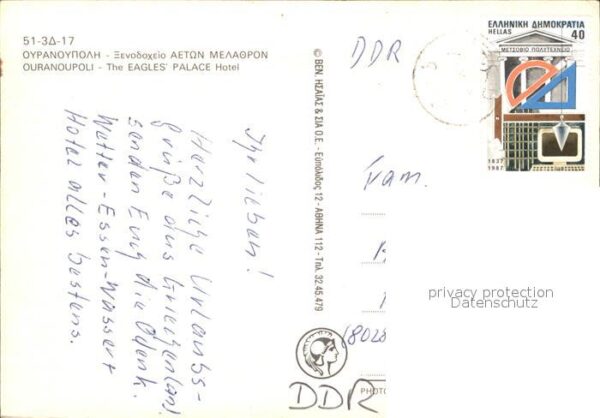 51-3Δ-17
ΟΥΡΑΝΟΥΠΟΛΗ - Ξενοδοχείο ΑΕΤΩΝ ΜΕΛΑΘΡΟΝ
OURANOUPOLI - The EAGLES' PALACE Hotel
Ihr lieben!
Herzliche Urlaubs-
grüße aus Griechenland
senden Euch die
Wetter-Essen-Wasser+
Hotel alles bestens.
© ΒΕΝ. ΗΣΑΪΑΣ & ΣΙΑ Ο.Ε. - Ευπόλιδος 12 - ΑΘΗΝΑ 112 - Τηλ. 32.45.479
DDR
ΕΛΛΗΝΙΚΗ ΔΗΜΟΚΡΑΤΙΑ
HELLAS 40
ΜΕΤΣΟΒΙΟ ΠΟΛΥΤΕΧΝΕΙΟ
1837
1987
Fam.
privacy protection
Datenschutz
(8028
DDR
PHOTO